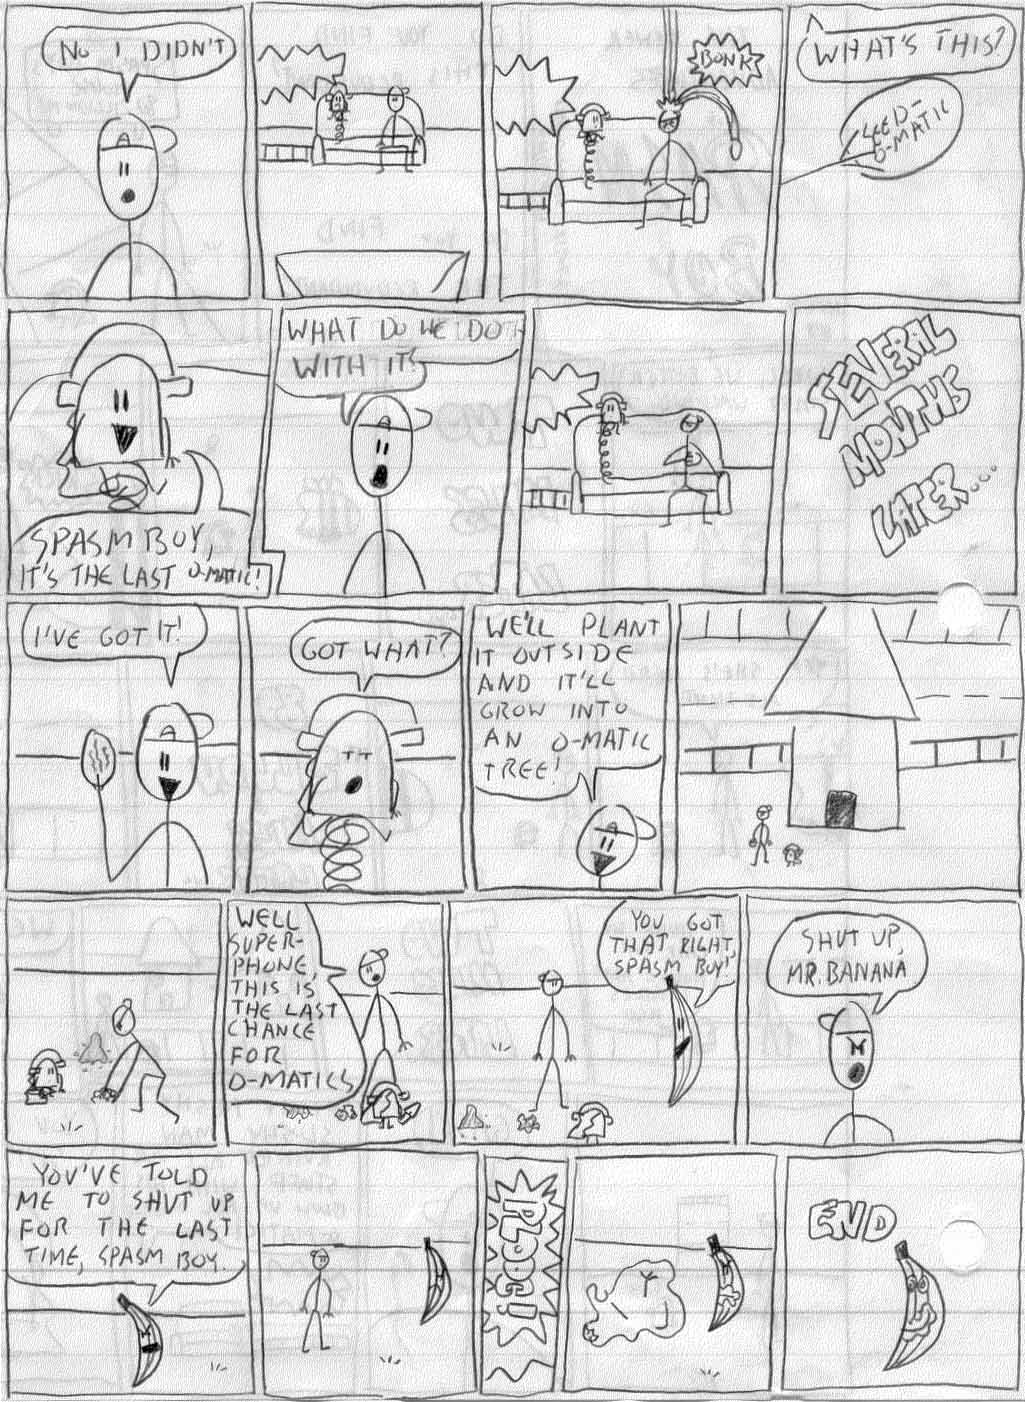 NO I DIDN'T
BONK
WHAT'S THIS?
SEED-
O-MATIC
SPASM BOY,
IT'S THE LAST O-MATIC!
WHAT DO WE DO
WITH IT?
SEVERAL
MONTHS
LATER...
I'VE GOT IT!
GOT WHAT?
WE'LL PLANT
IT OUTSIDE
AND IT'LL
GROW INTO
AN O-MATIC
TREE!
WELL
SUPER-
PHONE,
THIS IS
THE LAST
CHANCE
FOR
O-MATICS
YOU GOT
THAT RIGHT,
SPASM BOY!
SHUT UP,
MR. BANANA
YOU'VE TOLD
ME TO SHUT UP
FOR THE LAST
TIME, SPASM BOY.
PLOOG!
END